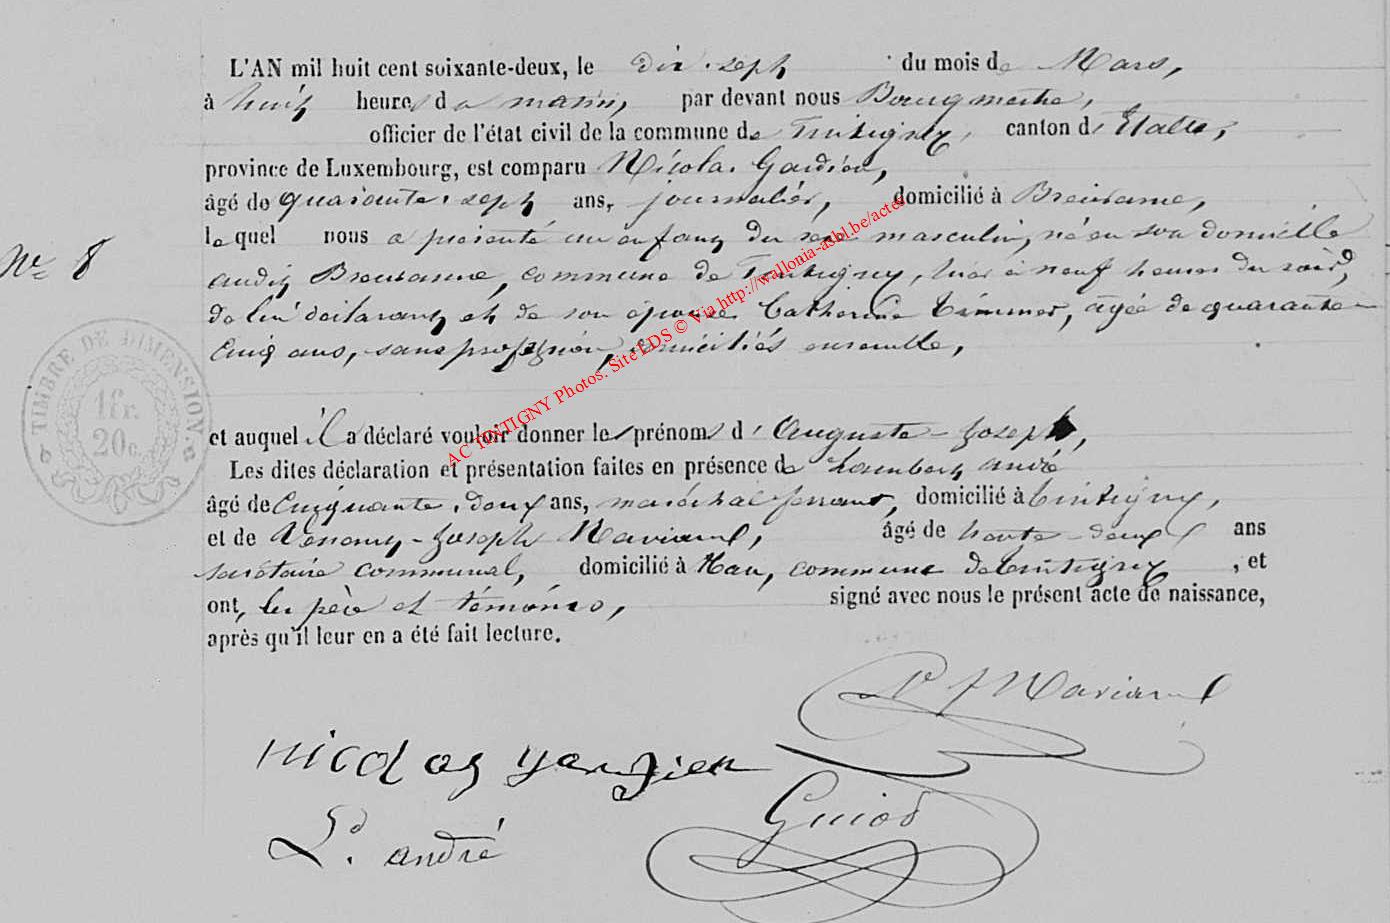 L'AN mil huit cent soixante-deux, le dix-sept du mois de Mars,
à huit heures du matin, par devant nous Bourgmestre,
officier de l'état civil de la commune de Tintigny, canton d'Etalle,
province de Luxembourg, est comparu Nicolas Gardien,
âgé de quarante-sept ans, journalier, domicilié à Breuvanne,
lequel nous a présenté un enfant du sexe masculin, né en son domicile
N° 8
audit Breuvanne, commune de Tintigny, hier à neuf heures du soir,
de lui déclarant et de son épouse Catherine, âgée de quarante-
cinq ans, sans profession, domiciliés ensemble,
TIMBRE DE DIMENSION.
1fr.
20c.
et auquel il a déclaré vouloir donner les prénoms d'Auguste-Joseph,
Les dites déclaration et présentation faites en présence de Lambert André
âgé de Cinquante-deux ans, maréchal ferrant, domicilié à Tintigny,
et de Joseph Maviaux, âgé de trente-deux ans
secrétaire communal, domicilié à Han, commune de Tintigny, et
ont, les père et témoins, signé avec nous le présent acte de naissance,
après qu'il leur en a été fait lecture.
AC TINTIGNY Photos. Site EDS © Via http://wallonia-asbl.be/actes
nicolas gardien
Guiot
L. andré